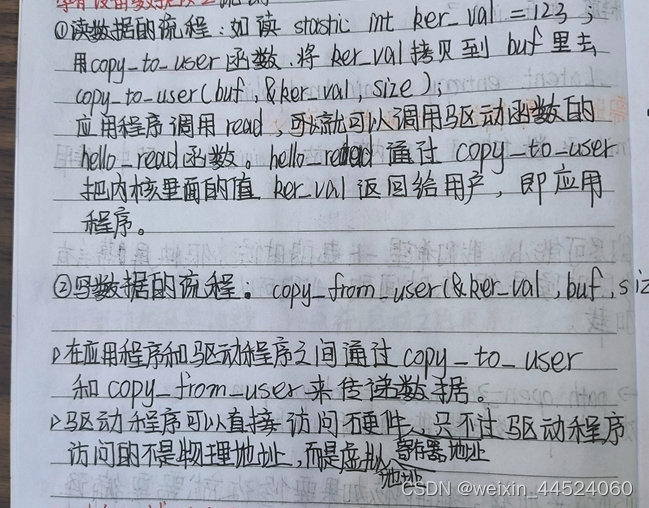 字符设备驱动
①读数据的流程：如读 static int ker_val = 123；
用copy_to_user函数、将 ker_val 拷贝到 buf 里去
copy_to_user(buf, &ker_val, size)；
应用程序调用 read，可以就可以调用驱动函数的
hello_read函数。hello_read 通过 copy_to_user
把内核里面的值 ker_val 返回给用户，即应用
程序。
②写数据的流程：copy_from_user(&ker_val, buf, siz
在应用程序和驱动程序之间通过 copy_to_user
和 copy_from_user 来传递数据。
驱动程序可以直接访问硬件、只不过驱动程序
访问的不是物理地址，而是虚拟寄存器地址
地址
CSDN @weixin_44524060